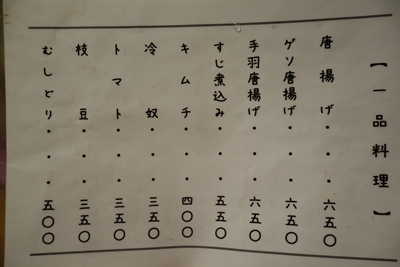 【一品料理】
唐揚げ・・・六五〇
ゲソ唐揚げ・・・六五〇
手羽唐揚げ・・・六五〇
すじ煮込み・・・五五〇
キムチ・・・四〇〇
冷奴・・・三五〇
トマト・・・三五〇
枝豆・・・三五〇
むしとり・・・五〇〇